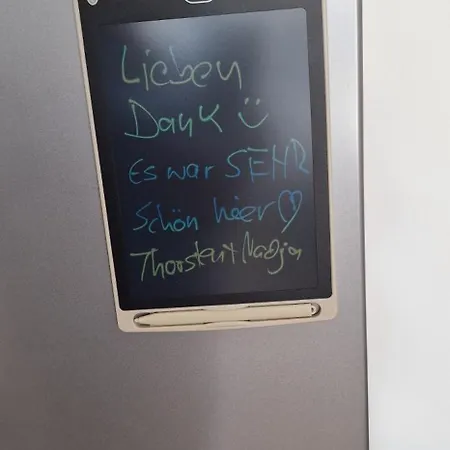 Lieben
Dank ☺
Es war SEHR
Schön hier ♡
Thorsten + Nadja